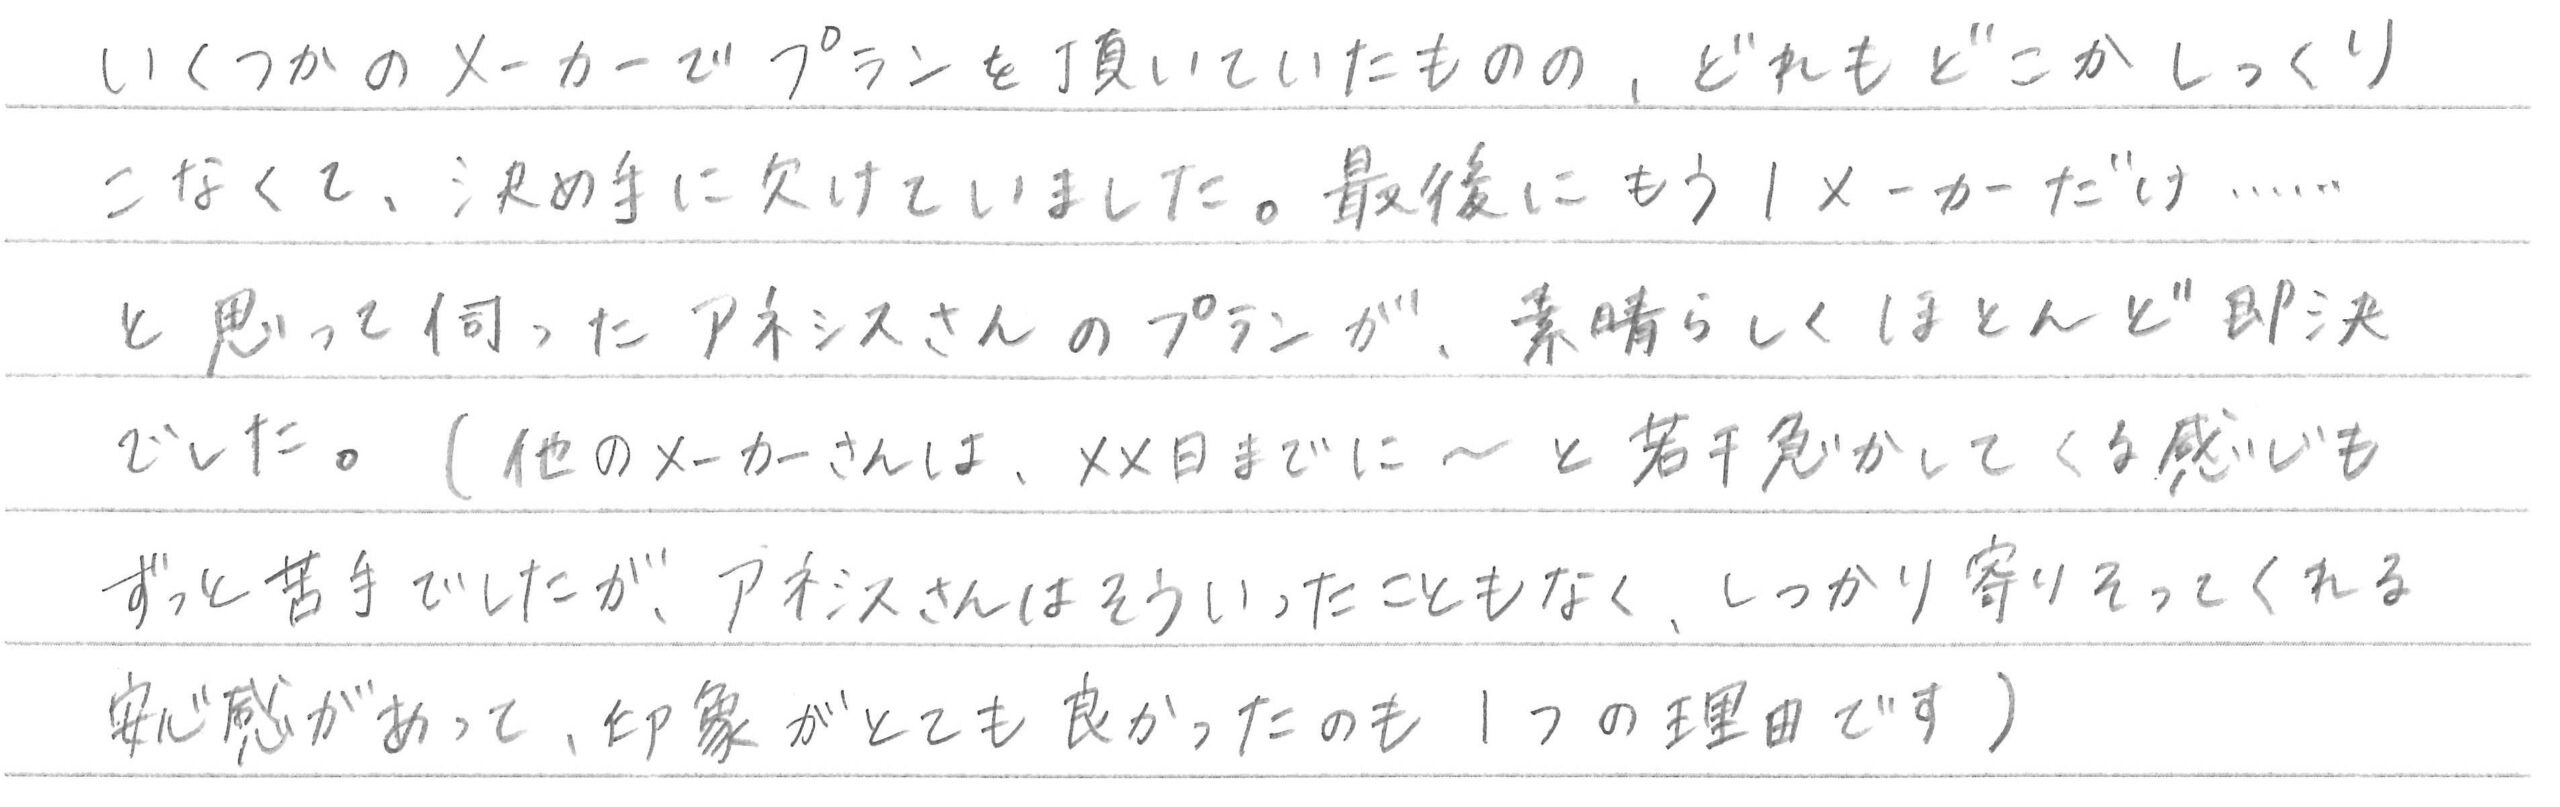 いくつかのメーカーでプランを頂いていたものの、どれもどこかしっくり
こなくて、決め手に欠けていました。最後にもう1メーカーだけ……
と思って伺ったアネシスさんのプランが、素晴らしくほとんど即決
でした。(他のメーカーさんは、××日までに〜と若干急かしてくる感じも
ずっと苦手でしたが、アネシスさんはそういったこともなく、しっかり寄りそってくれる
安心感があって、印象がとても良かったのも1つの理由です)